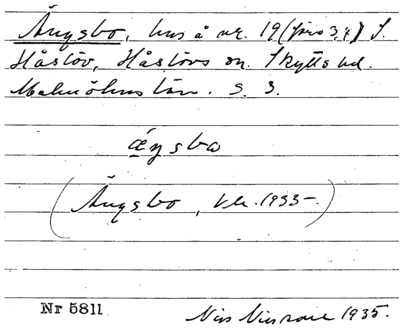 Ängsbo, hus å nr. 19 (förs 3,4) S.
Håslöv, Håslövs sn. Skytts hd.
Malmöhus län. S. 3.
ängsbo
(Ängsbo, kk. 1933-.)
Nr 5811. Nils 1935.